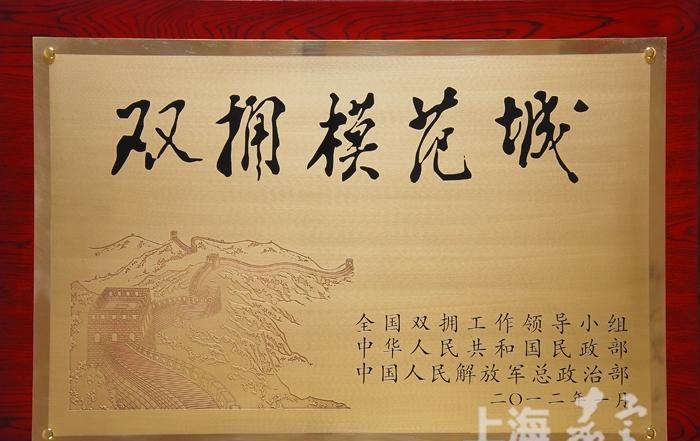 双拥模范城
全国双拥工作领导小组
中华人民共和国民政部
中国人民解放军总政治部
二〇一二年一月
上海